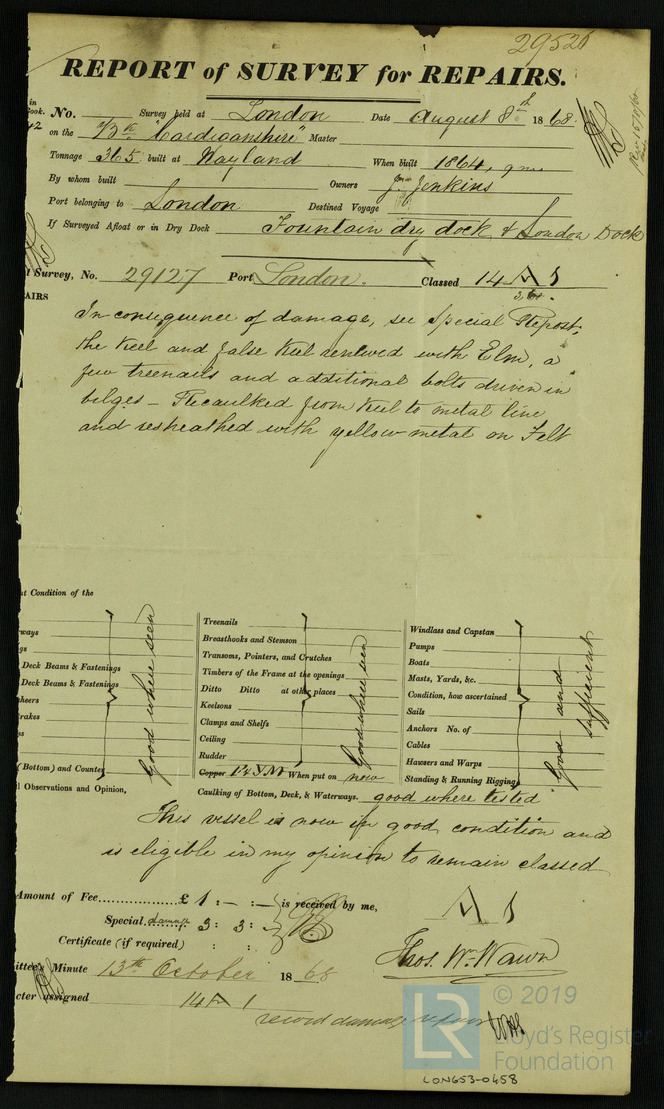 29526
REPORT of SURVEY for REPAIRS.
in
ook. No. Survey held at London Date August 8th 1868
42 on the "Cardiganshire" Master
Tonnage 365 built at Wayland When built 1864,
By whom built Owners Jenkins
Port belonging to London Destined Voyage
If Surveyed Afloat or in Dry Dock Fountain dry dock & London Dock
l Survey, No. 29127 Port London. Classed 14 A 1
AIRS
In consequence of damage, see Special Report,
the Keel and false Keel renewed with Elm, a
few treenails and additional bolts driven in
bilges – Recaulked from Keel to metal line
and resheathed with yellow metal on Felt
nt Condition of the
ways
gs
Deck Beams & Fastenings
Deck Beams & Fastenings
heers
trakes
gs
(Bottom) and Counter
good where seen
Treenails
Breasthooks and Stemson
Transoms, Pointers, and Crutches
Timbers of the Frame at the openings
Ditto Ditto at other places
Keelsons
Clamps and Shelfs
Ceiling
Rudder
good where seen
Copper F & YM When put on now
Windlass and Capstan
Pumps
Boats
Masts, Yards, &c.
Condition, how ascertained
Sails
Anchors No. of
Cables
Hawsers and Warps
Standing & Running Rigging
good and sufficient
l Observations and Opinion,
Caulking of Bottom, Deck, & Waterways. good where tested
This vessel is now in good condition and
is eligible in my opinion to remain classed
A 1
Amount of Fee............... £ 1 : – : – is received by me,
Special. damage 3 : 3 :
Certificate (if required) : :
Thos. Wm. Wawn
ittee's Minute 13th October 1868
cter assigned 14 A 1
record damage repairs
© 2019
LR Lloyd's Register
Foundation
LON653-0458